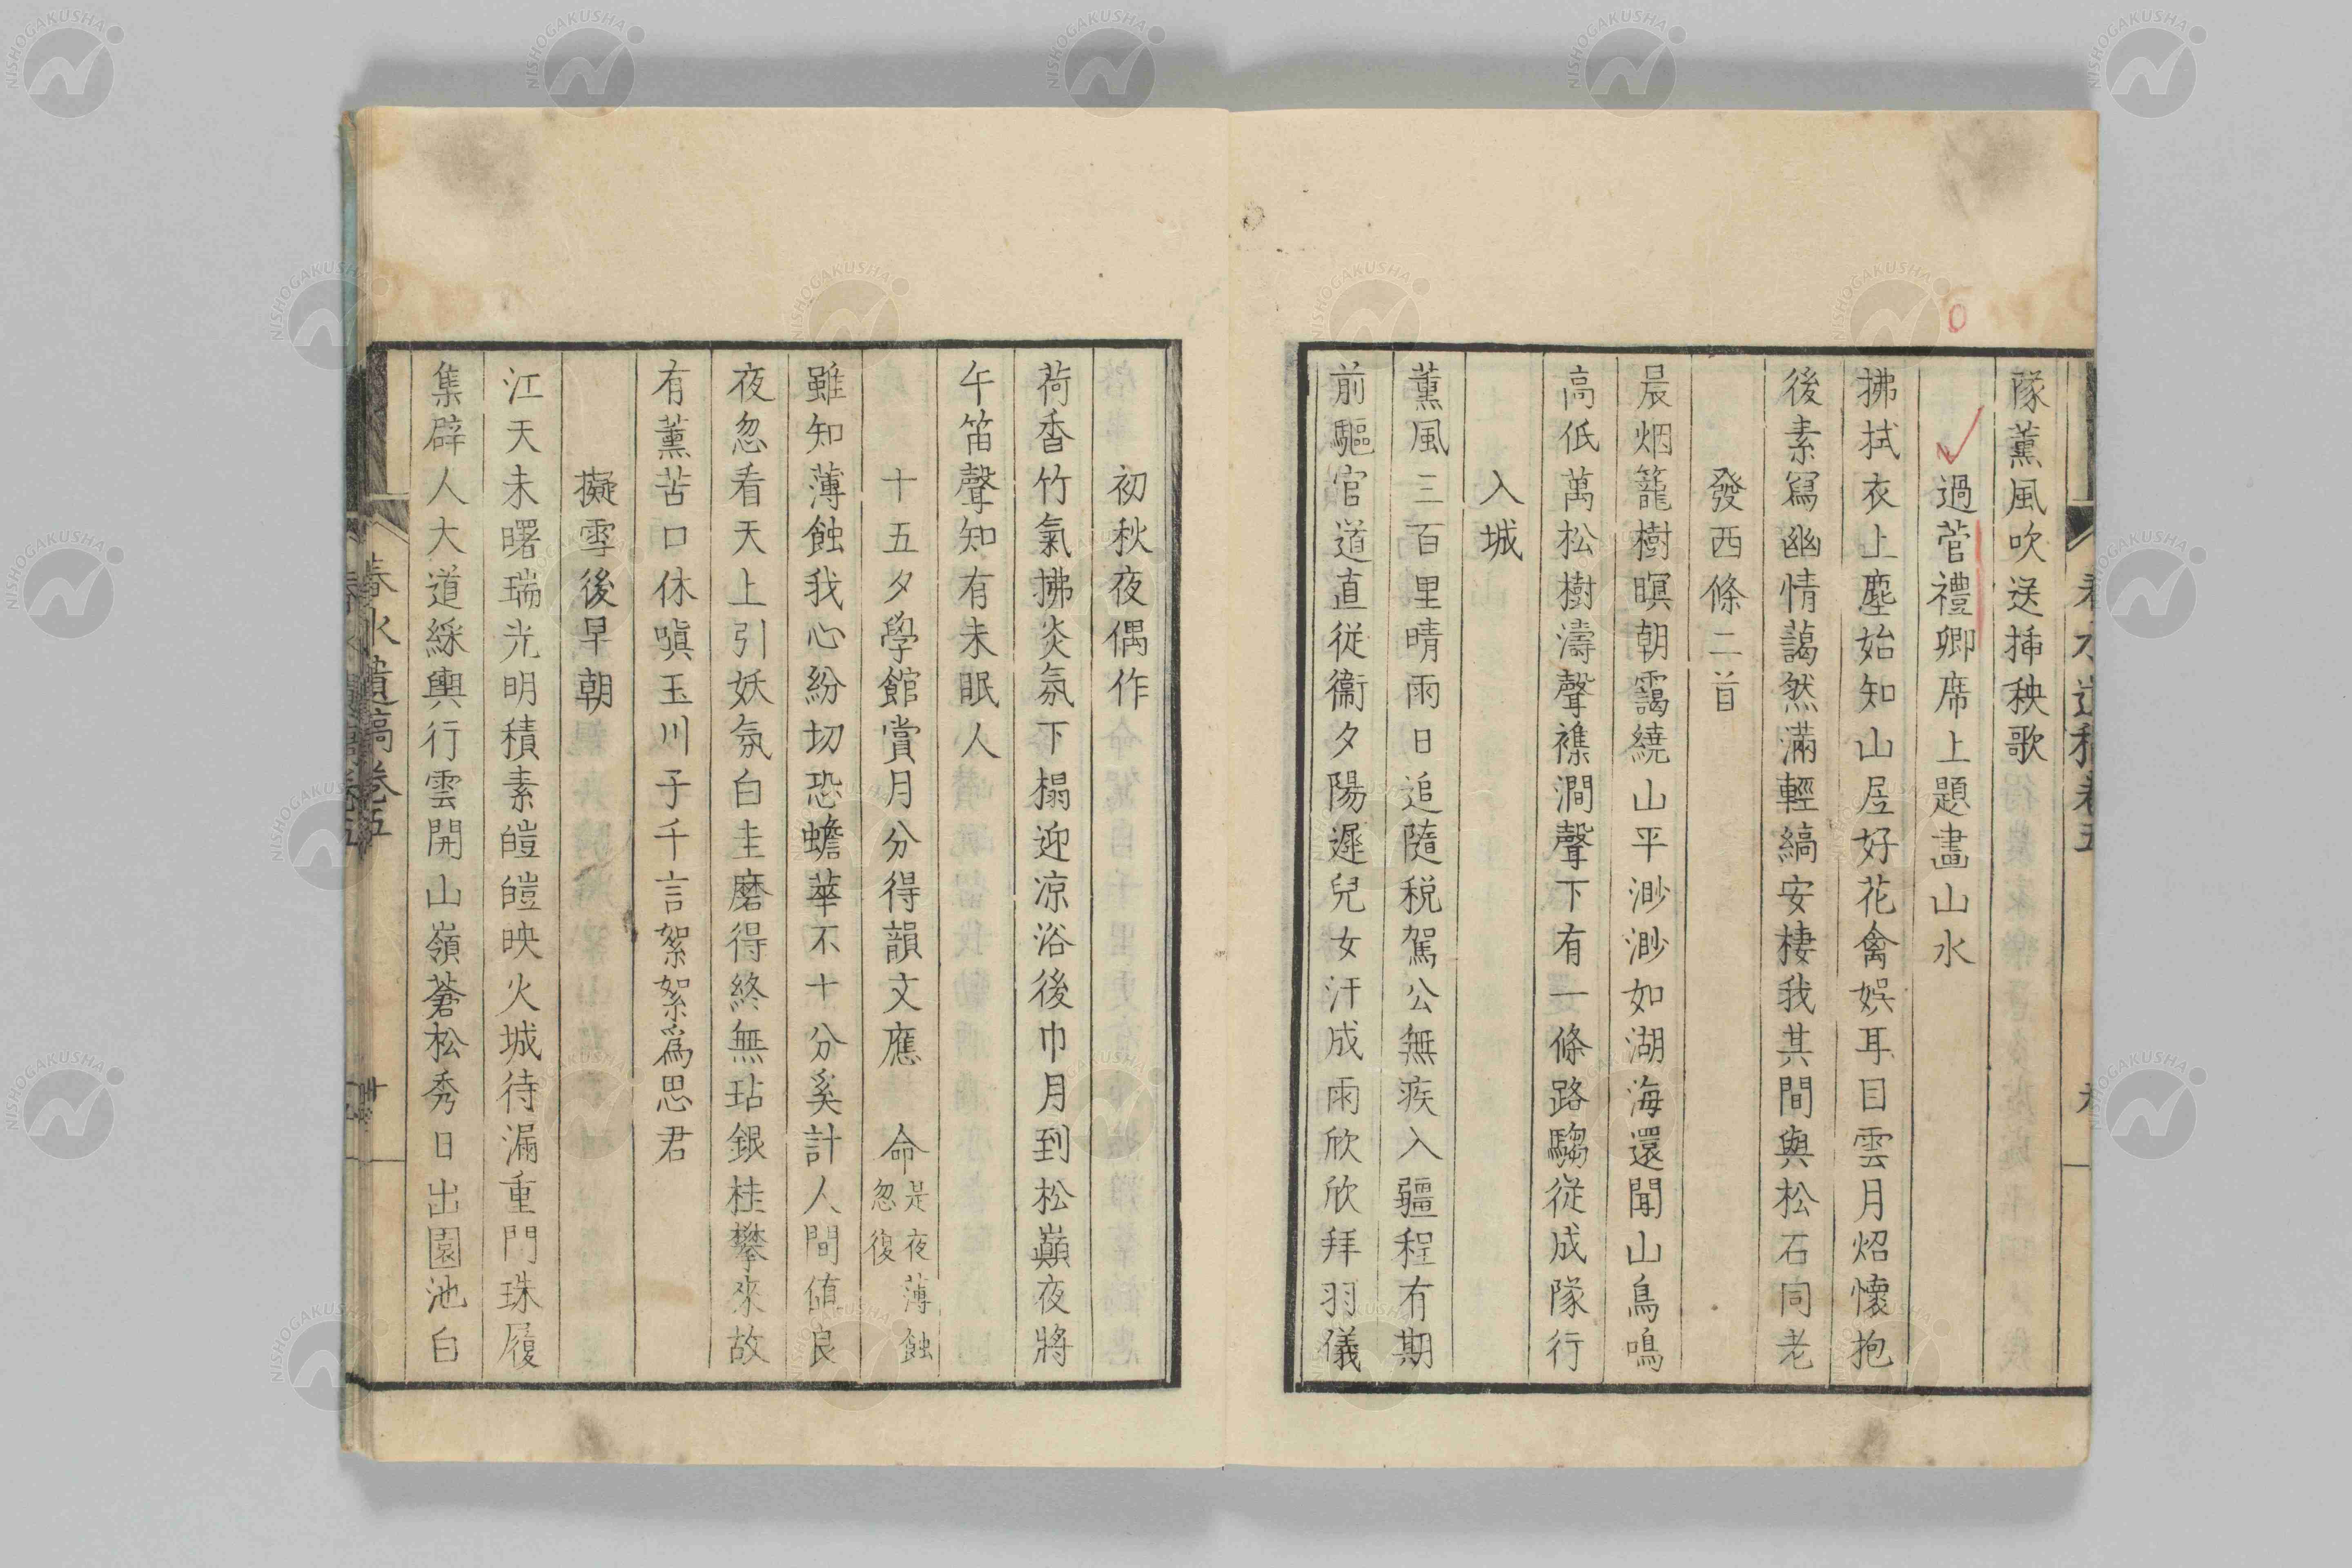 隊薰風吹送插秧歌
過菅禮卿席上題畵山水
拂拭衣上塵始知山居好花禽娯耳目雲月炤懷抱
後素寫幽情藹然滿輕縞安棲我其間與松石同老
發西條二首
晨烟籠樹暝朝靄繞山平渺渺如湖海還聞山鳥鳴
高低萬松樹濤聲襍澗聲下有一條路騶從成隊行
入城
薰風三百里晴雨日追隨税駕公無疾入疆程有期
前驅官道直從衞夕陽遲兒女汗成雨欣欣拜羽儀
初秋夜偶作
荷香竹氣拂炎氛下榻迎凉浴後巾月到松巔夜將
午笛聲知有未眠人
十五夕學館賞月分得韻文應 命是夜薄蝕忽復
雖知薄蝕我心紛切恐蟾華不十分奚計人間値良
夜忽看天上引妖氛白圭磨得終無玷銀桂攀來故
有薰苦口休嗔玉川子千言絮絮爲思君
擬雪後早朝
江天未曙瑞光明積素皚皚映火城待漏重門珠履
集辟人大道綵輿行雲開山嶺蒼松秀日出園池白
春水遺稿卷五
NISHOGAKUSHA